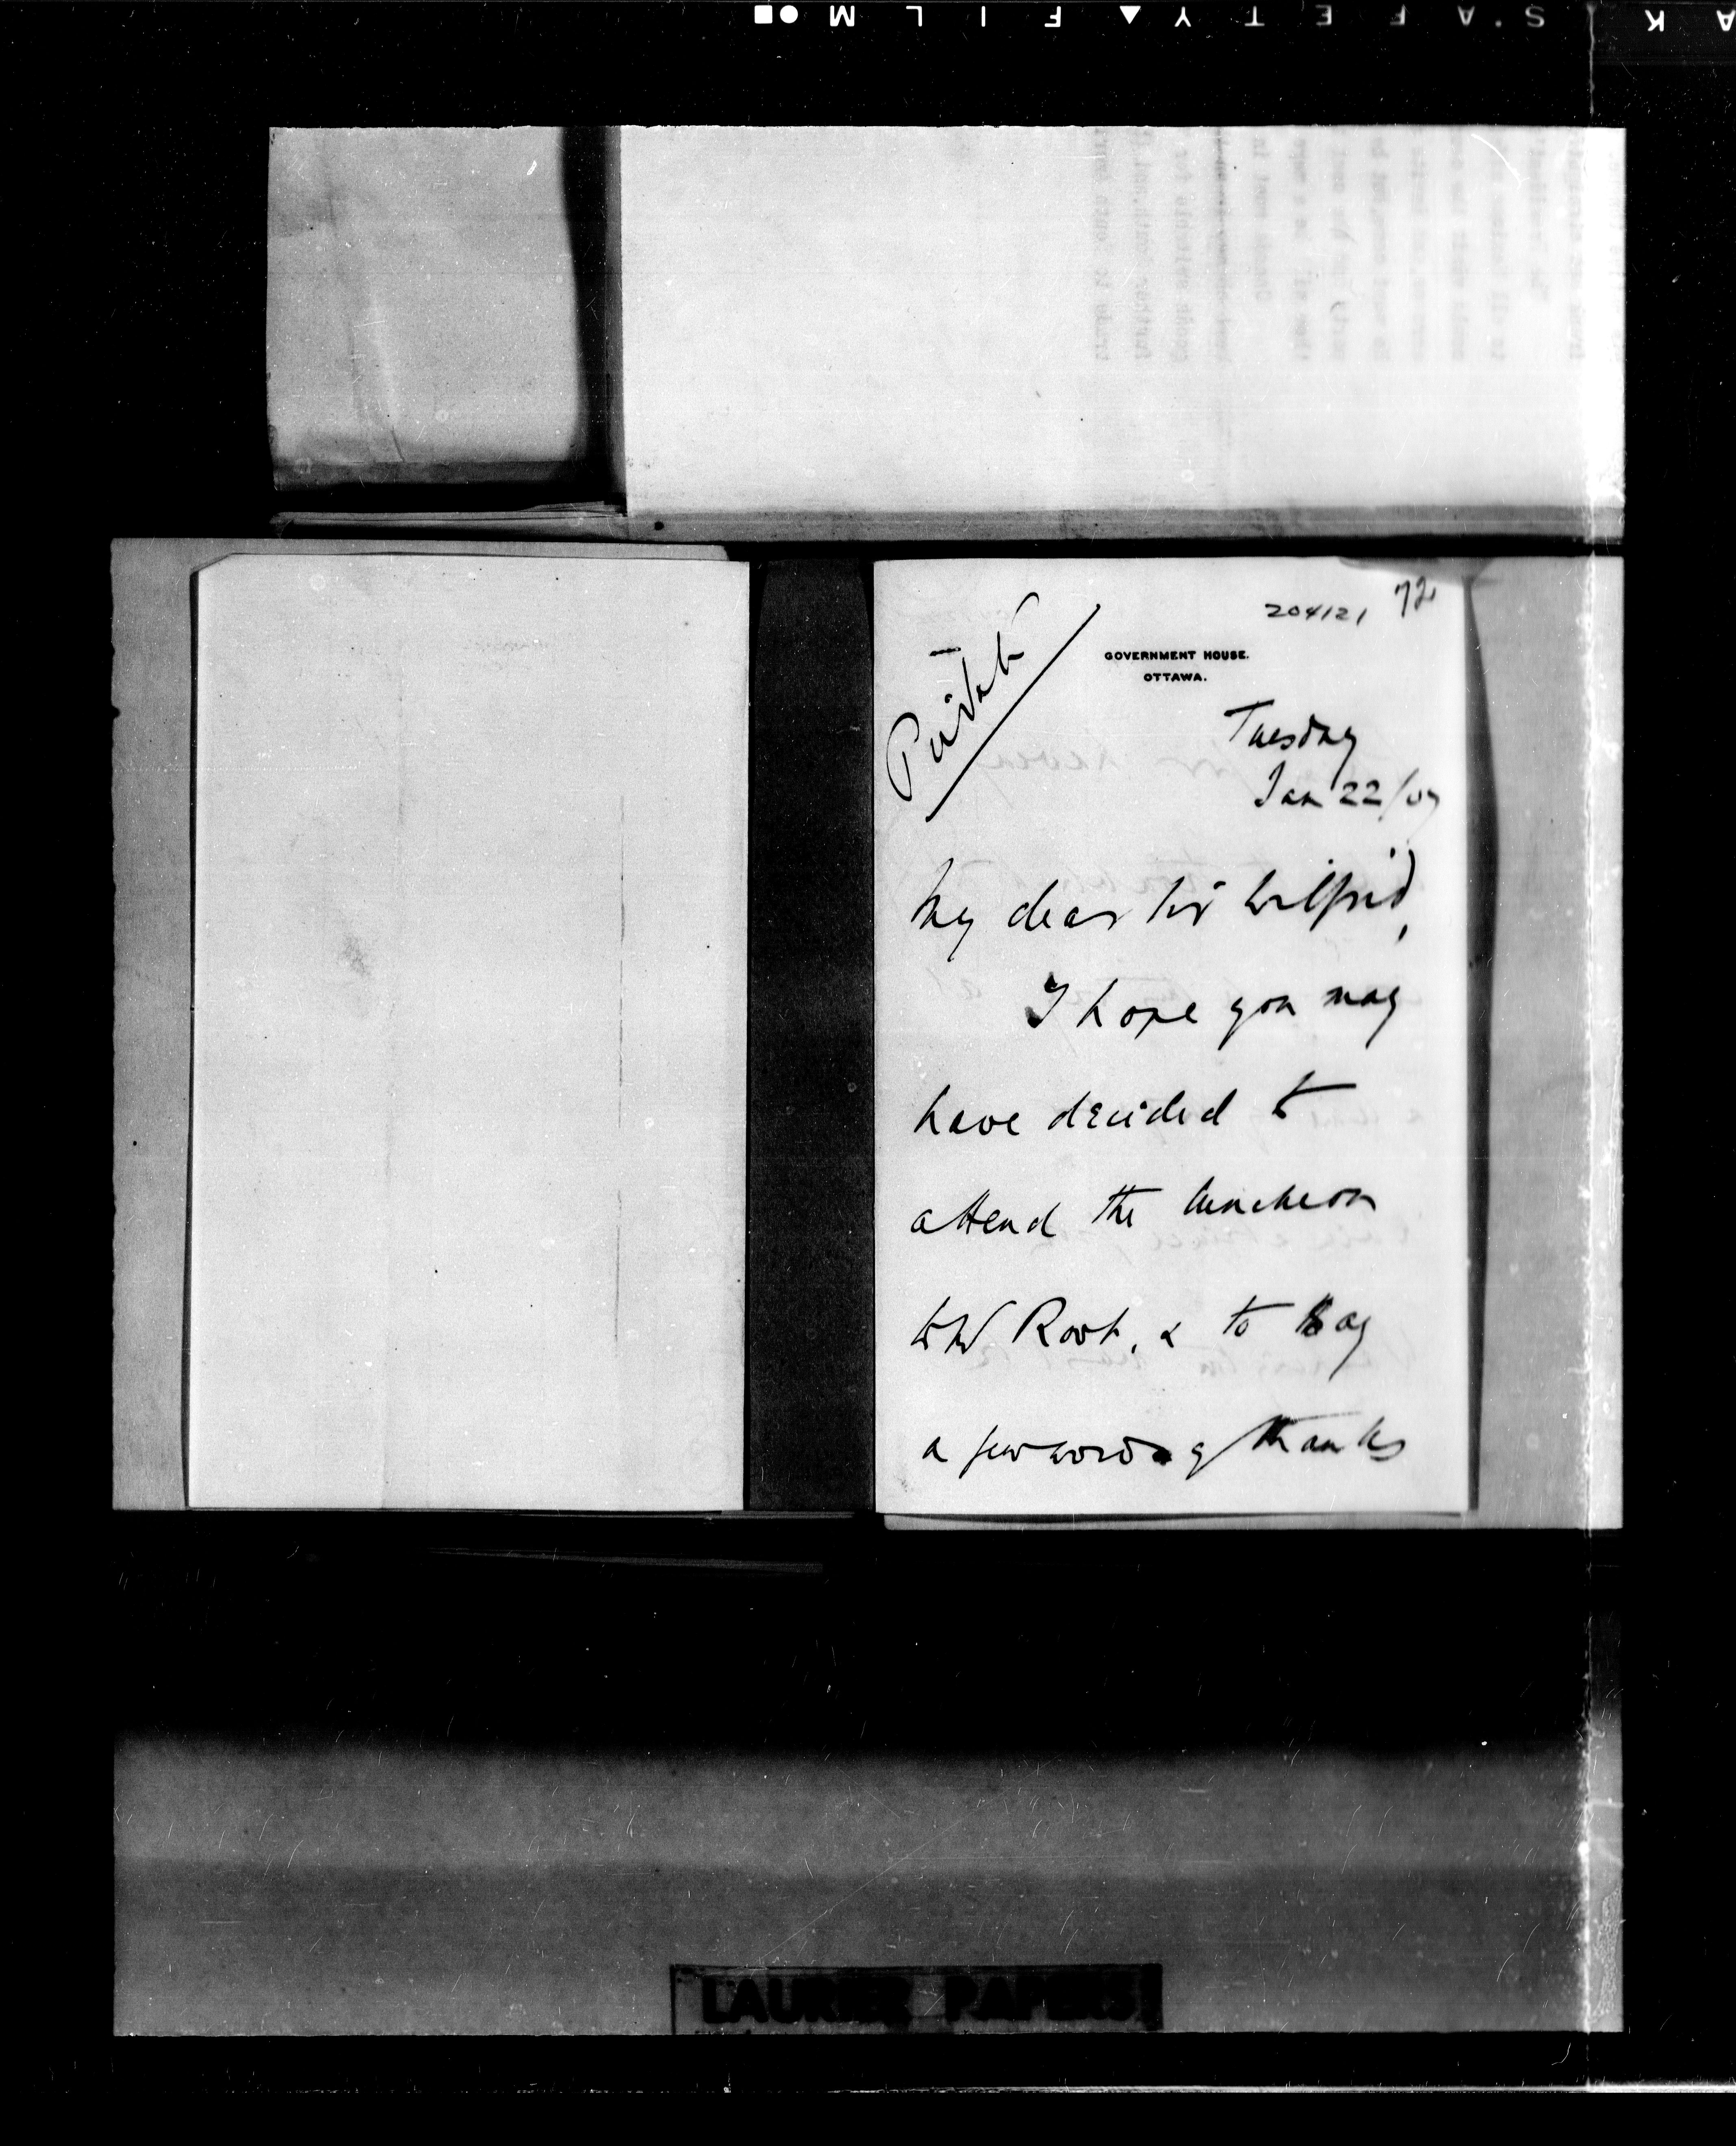 SAFETY FILM
204121 72
Private
GOVERNMENT HOUSE.
OTTAWA.
Tuesday
Jan 22/07
My dear Sir Wilfrid,
I hope you may
have decided to
attend the luncheon
to Mr Root, & to say
a few words of thanks
LAURIER PAPERS